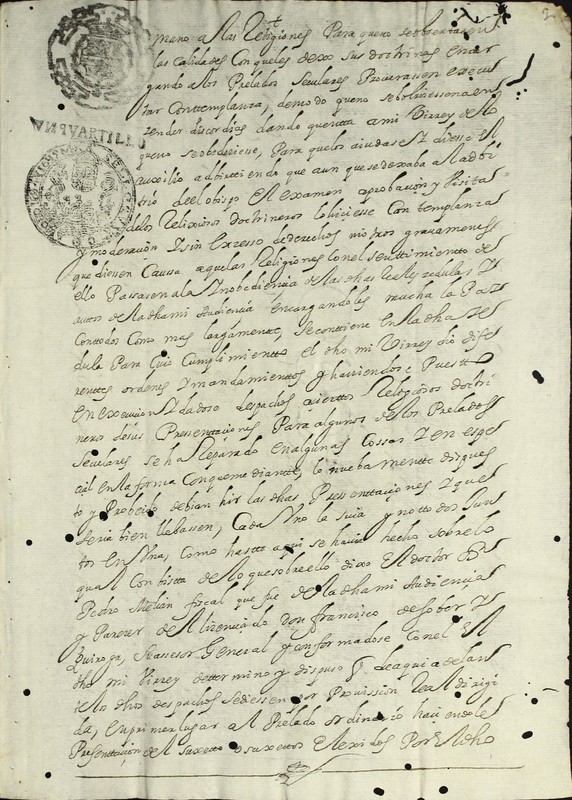 mano a las Religiones Para que no se obseruaran
las Calidades Con que les dexo sus doctrinas encar
gando a los Prelados Seculares Procurassen execu
tar Con templanza, de modo que no se boluiessen a en
zender discordias dando quentta a mi Virrey de lo
que no se obedeciese, Para que los aiudase Y diesse el
auxilio aduirtiendo que aun que se dexaba al adbi
trio del obispo El examen aprobacion y Visita
de los Relixiosos doctrineros lo hiciese Con templanza
y moderacion Y sin Exzesso de derechos ni otros grauamenes
que diessen Caussa a que las Religiones Con el senttimientto de
ello Passasen a la Ynobediencia de las dhas Reales zedulas Y
autos de la dha mi Audiencia encargandoles mucha la Paz
Con todos Como mas largamentte, se conttiene En la dha ze
dula Para Cuio Cumplimientto el dho mi Virrey dio dife
renttes ordenes Y mandamienttos y hauiendose Puestto
En execucion Y dadose despachos a ziertos Religiosos doctri
neros de sus Presenttaciones Para algunos de los Prelados
Seculares se ha Reparado en algunas Cossas Y en espe
cial en la forma Con que mediantte, lo nueba mentte dispues
to y Probeido debian hir las dhas Pressenttaciones Y que
seria bien lleuassen, Cada Vno la suia y no ttodos Jun
tos En Vna, Como hastta aqui se hauia hecho sobre lo
qual Con bistta de lo que sobre ello dixo El doctor D.
Pedro Melian fiscal que fue de la dha mi Audiencia
y Parezer del lizenciado Don francisco de
Quiroga, Su assesor General Y conformadose Con el El
dho mi Virrey determino y dispuso q de aqui adelan
te los dhos despachos se diessen por Prouission Real dirigi
da, en primer lugar al Prelado ordinario haciendole
Presenttacion del suxetto o suxettos Elexidos Por El dho
VN QVARTILLO